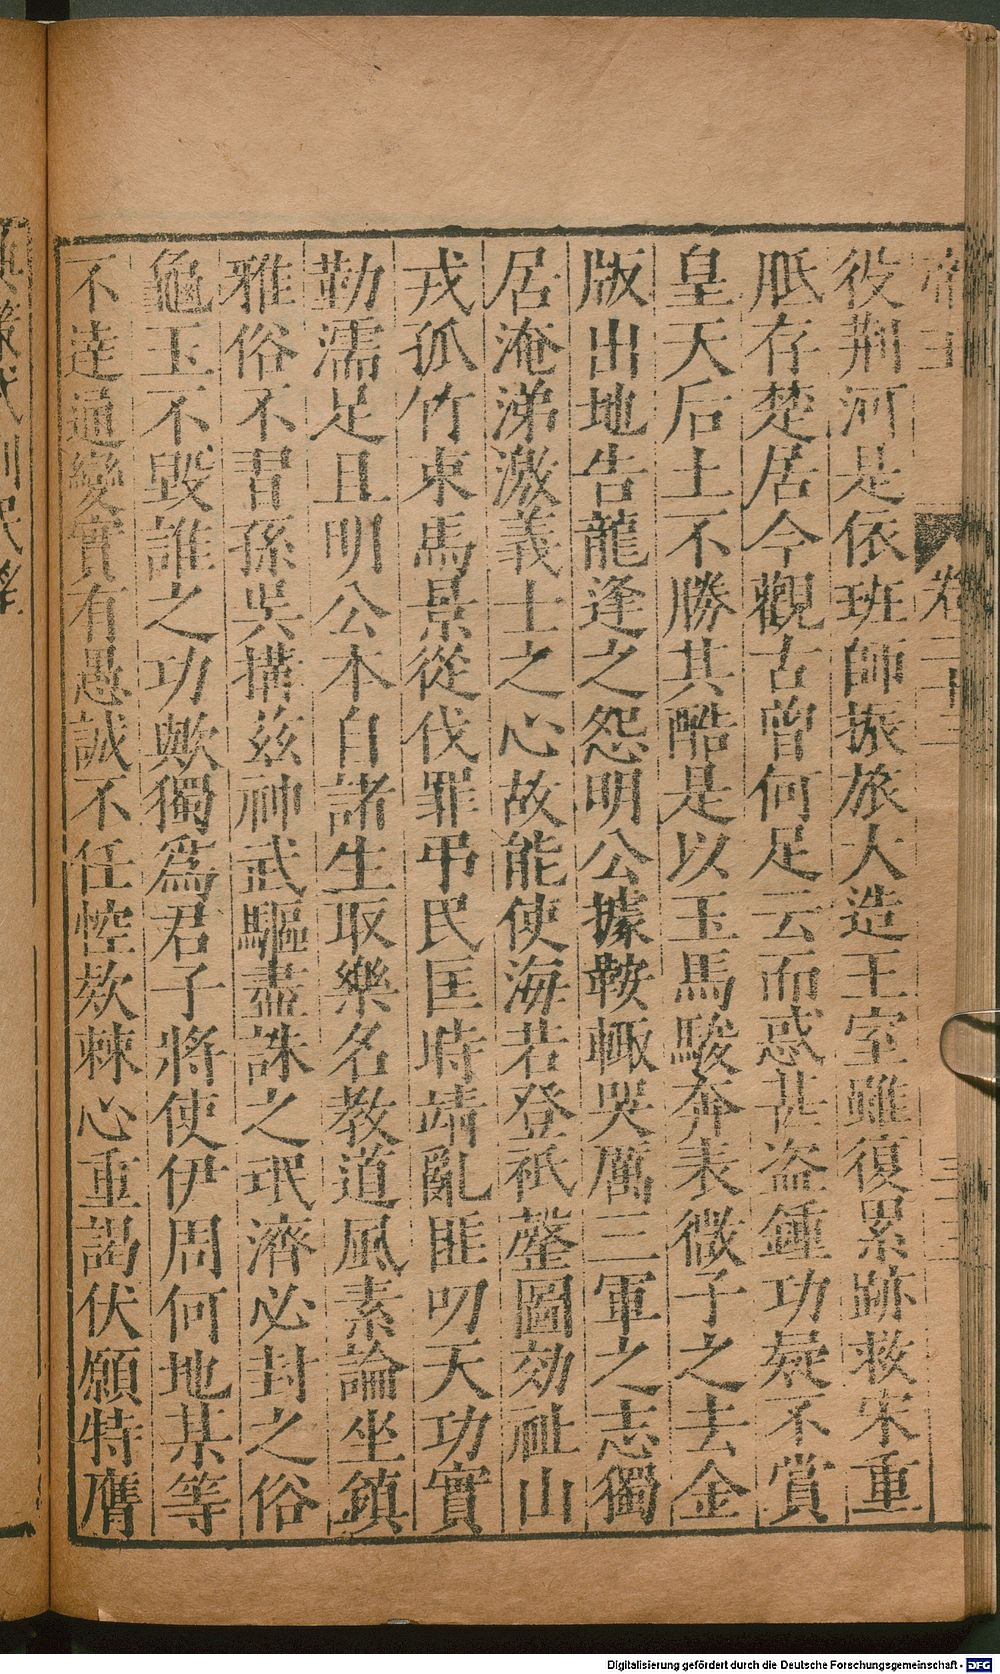 役荆河是依班師振旅大造王室雖復累跡救宋重
胝存楚居今觀古曾何足云而惑甚盗鍾功疑不賞
皇天后土不勝其酷是以玉馬駿奔表微子之去金
版出地告龍逢之怨明公據鞍輙哭厲三軍之志獨
居淹涕激義士之心故能使海若登祇罄圖効祉山
戎孤竹束馬景從伐罪弔民匡時靖亂匪叨天功實
勤濡足且明公本自諸生取樂名教道風素論坐鎮
雅俗不習孫吳搆兹神武驅盡誅之氓濟必封之俗
龜玉不毀誰之功歟獨爲君子將使伊周何地某等
不達通變實有愚誠不任悾款棘心重謁伏願特膺
卷三十三
Digitalisierung gefördert durch die Deutsche Forschungsgemeinschaft - DFG